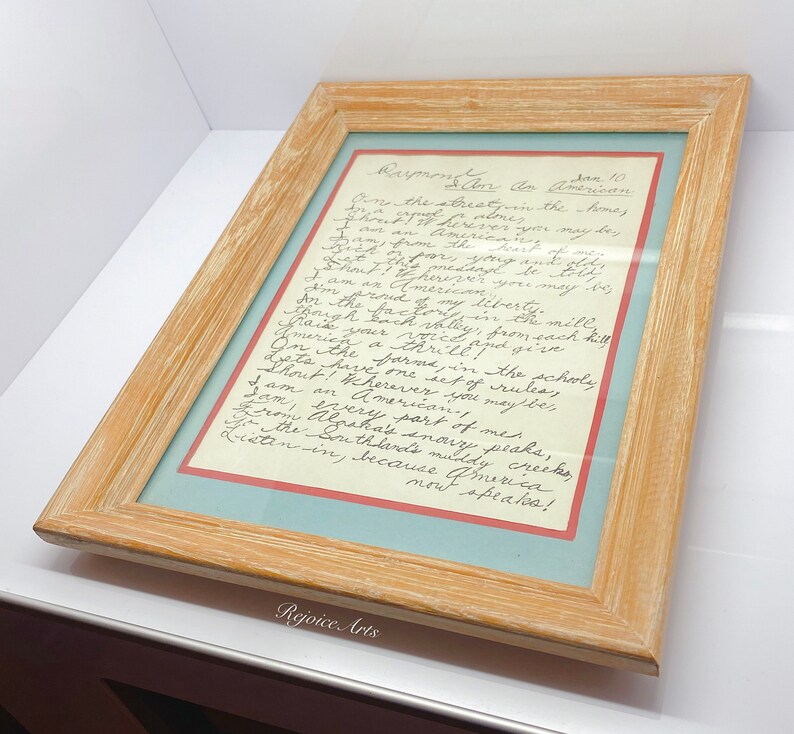 Raymond Jan 10
I Am An American
On the street, in the home,
In a crowd or alone,
Shout! Wherever you may be,
I am an American,
I am, from the heart of me.
Rich or poor, young and old,
Let this message be told,
Shout! Wherever you may be,
I am an American,
I'm proud of my liberty.
In the factory, in the mill,
though each valley, from each hill,
Raise your voice and give
America a thrill!
On the farms, in the schools,
Lets have one set of rules,
Shout! Wherever you may be,
I am an American,
I am every part of me,
From Alaska's snowy peaks,
To the Southland's muddy creeks,
Listen in, because America
now speaks!
RejoiceArts